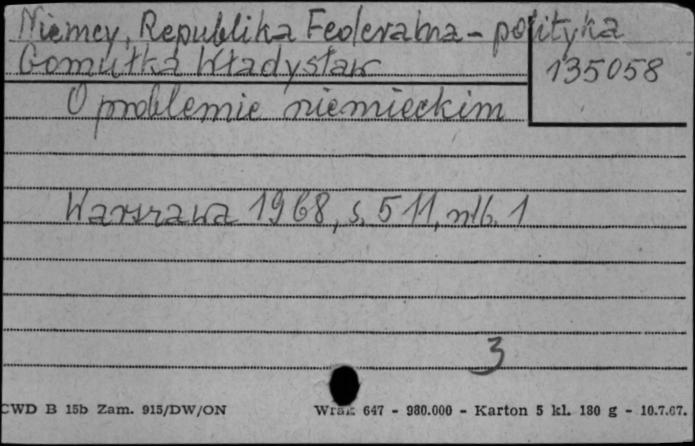 Niemcy, Republika Federalna - polityka
Gomułka Władysław
135058
O problemie niemieckim
Warszawa 1968, s. 511, nlb. 1
3
CWD B 15b Zam. 915/DW/ON Wrak 647 - 980.000 - Karton 5 kl. 180 g - 10.7.67.